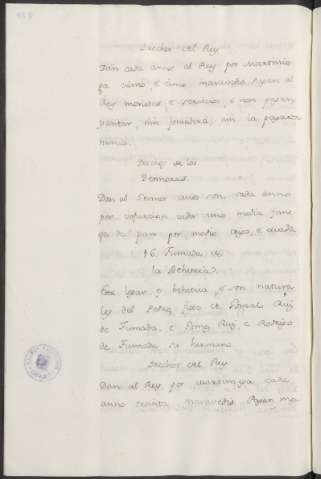 Derechos del Rey
Dan cada anno al Rey por Martinie
ga ciento, e cinco maravedis Pagan al
Rey monedas e servicios, e non pagan
yantar, nin fonsadera, nin la pagaron
nunca.
Derechos de los
Devisores.
Dan al Sennor cuios son cada anno
por infurcion cada uno media fane
ga de pan por medio
16. Fumada
la Behetria.
Este logar es behetria, e son natura
les del Perez fijo de Ruy
de Fumada, e Gomez Ruiz, e Rodrigo
de Fumada, su hermano
Derechos del Rey
Dan al Rey por martiniega cada
anno treinta maravedis. Pagan mo